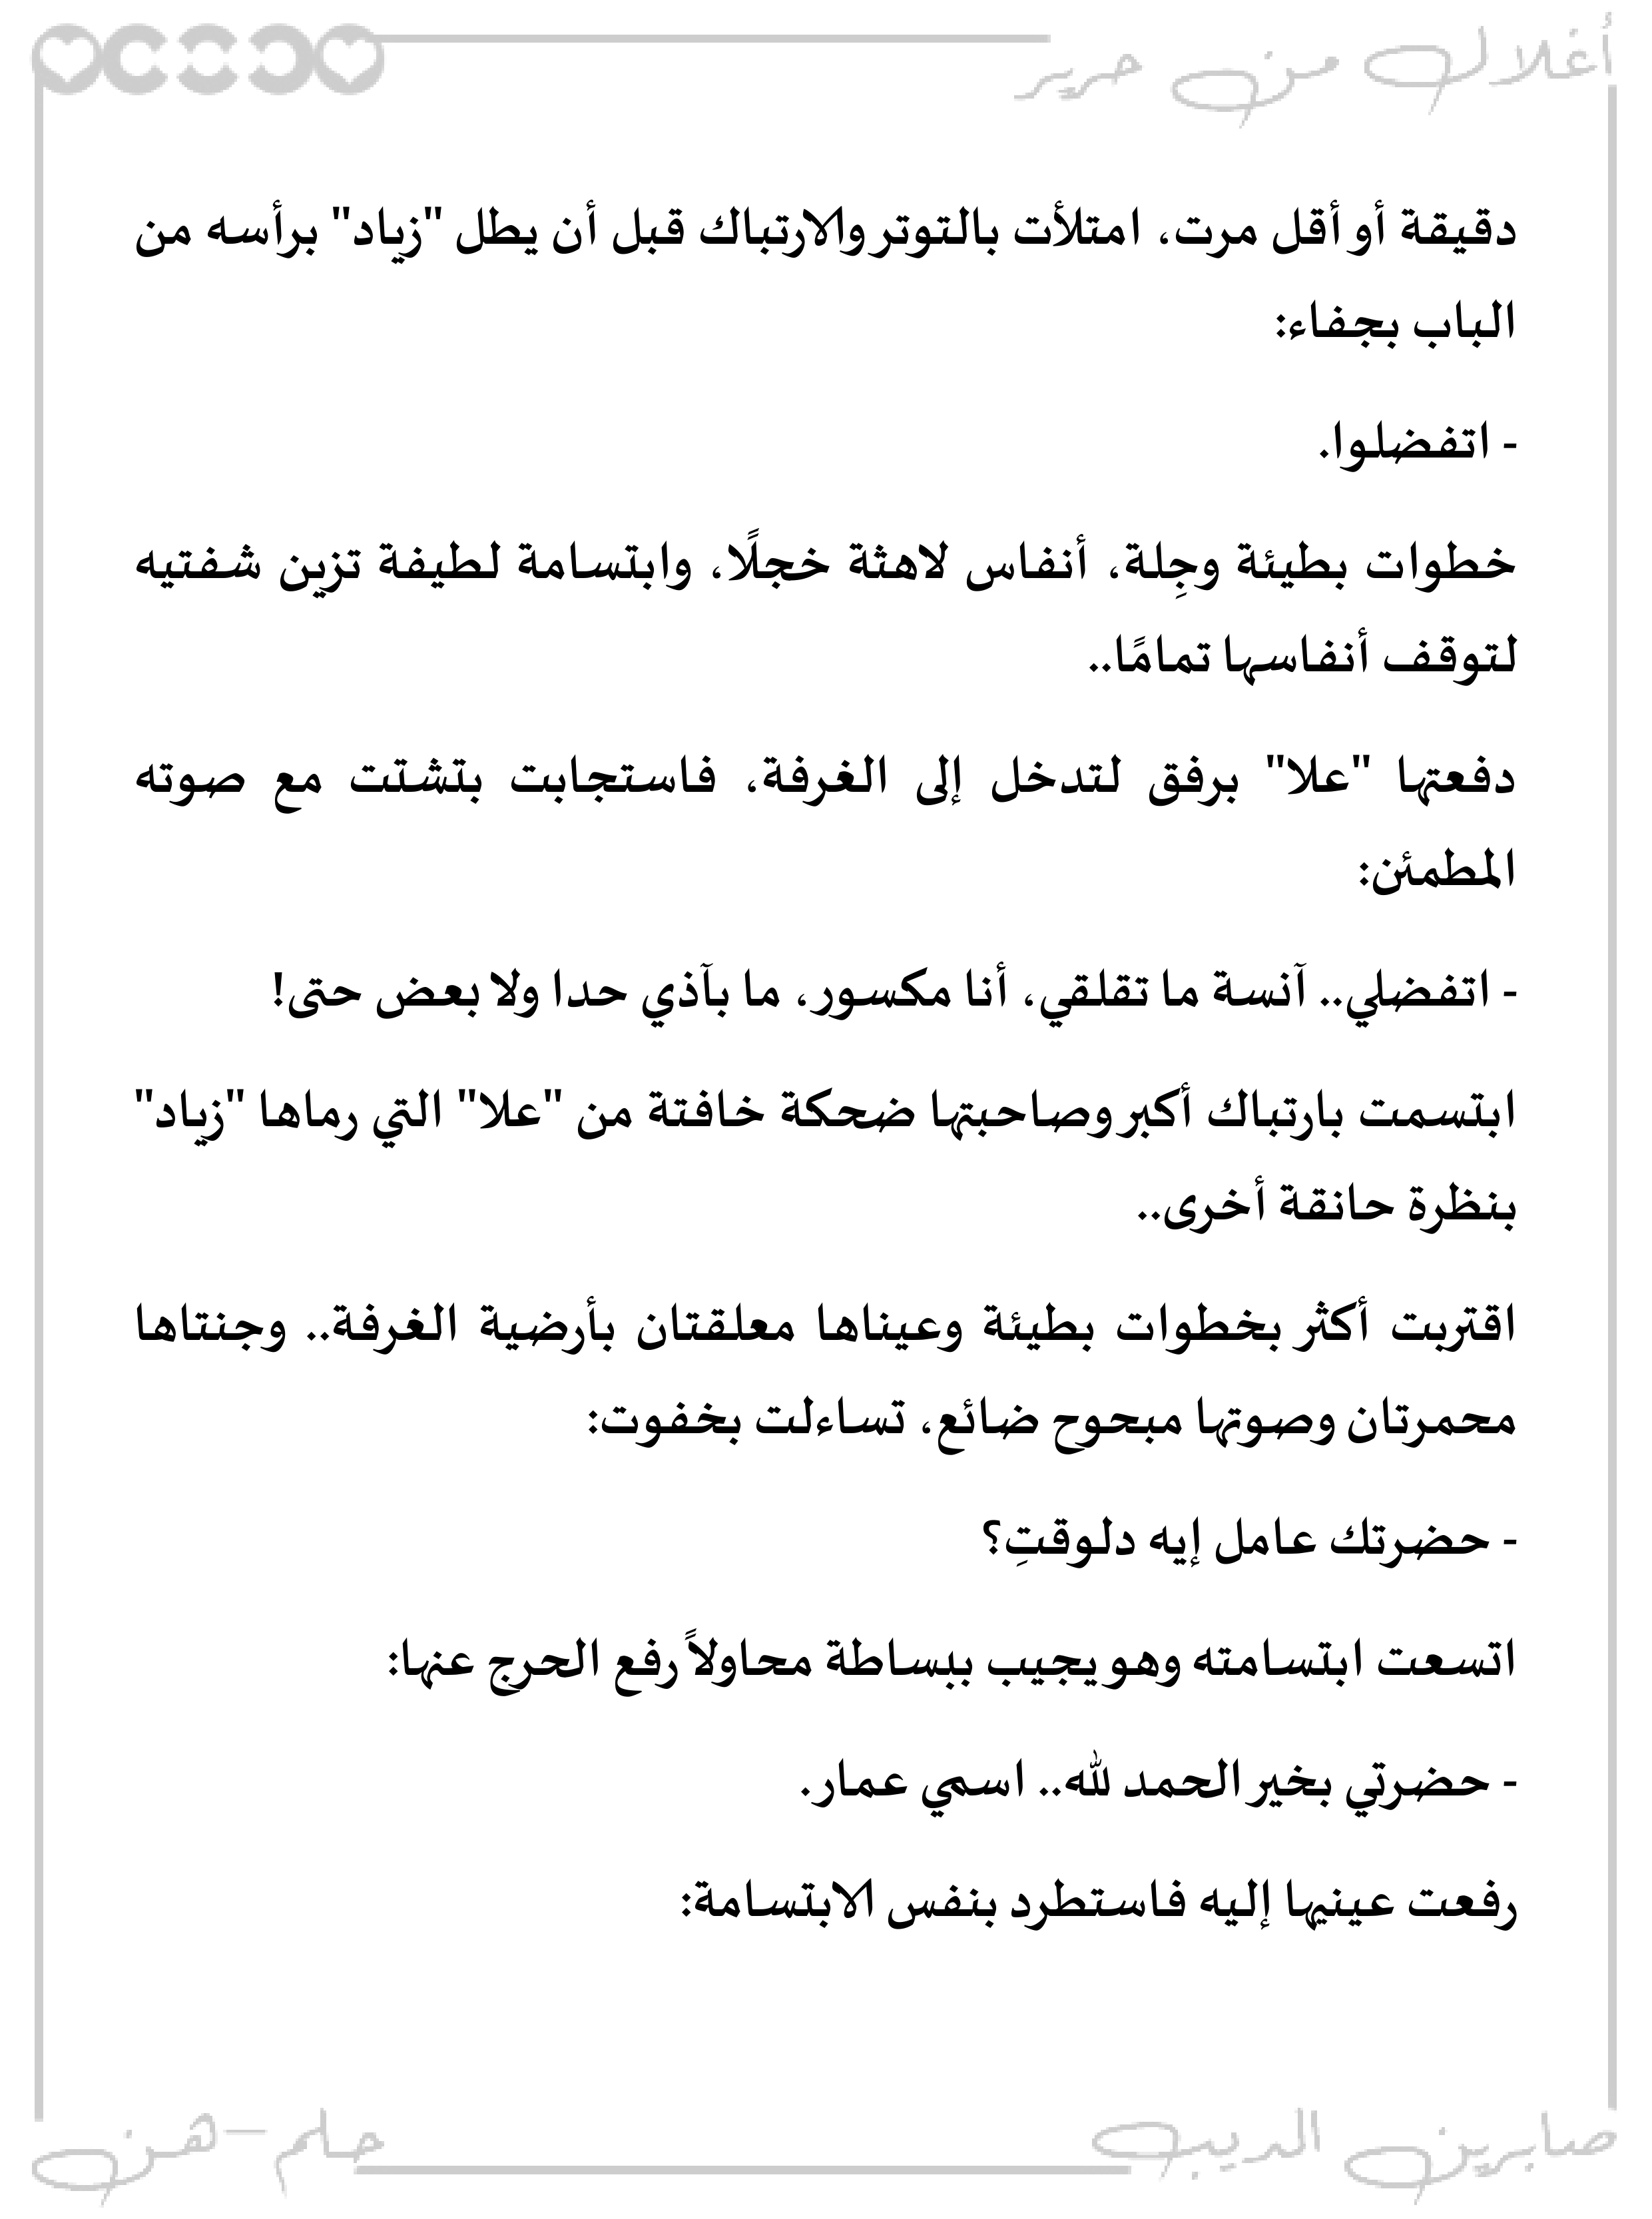 أغلال من حرير
دقيقة أو أقل مرت، امتلأت بالتوتر والارتباك قبل أن يطل "زياد" برأسه من
الباب بجفاء:
- اتفضلوا.
خطوات بطيئة وجِلة، أنفاس لاهثة خجلًا، وابتسامة لطيفة تزين شفتيه
لتوقف أنفاسها تمامًا..
دفعتها "علا" برفق لتدخل إلى الغرفة، فاستجابت بتشتت مع صوته
المطمئن:
- اتفضلي.. آنسة ما تقلقي، أنا مكسور، ما بآذي حدا ولا بعض حتى!
ابتسمت بارتباك أكبر وصاحبتها ضحكة خافتة من "علا" التي رماها "زياد"
بنظرة حانقة أخرى..
اقتربت أكثر بخطوات بطيئة وعيناها معلقتان بأرضية الغرفة.. وجنتاها
محمرتان وصوتها مبحوح ضائع، تساءلت بخفوت:
- حضرتك عامل إيه دلوقتِ؟
اتسعت ابتسامته وهو يجيب ببساطة محاولاً رفع الحرج عنها:
- حضرتي بخير الحمد لله.. اسمي عمار.
رفعت عينيها إليه فاستطرد بنفس الابتسامة:
صابرين الديب
حلم-هن